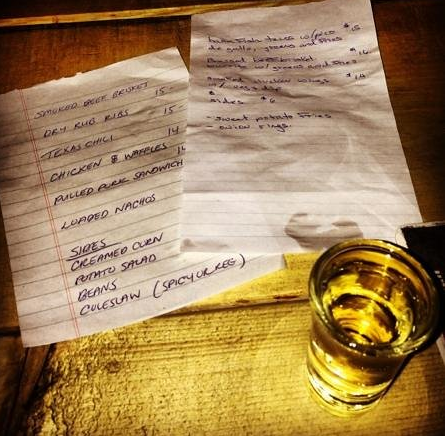 SMOKED BEEF BRISKET 15-
DRY RUB RIBS 15-
TEXAS CHILI 14
CHICKEN & WAFFLES
PULLED PORK SANDWICH
LOADED NACHOS
SIDES
CREAMED CORN
POTATO SALAD
BEANS
COLESLAW (SPICY OR REG)
tacos w/pico $15
de gallo, greens and fries
w/ greens and fries
smoked chicken wings
sides $6
- sweet potato fries
- onion rings.